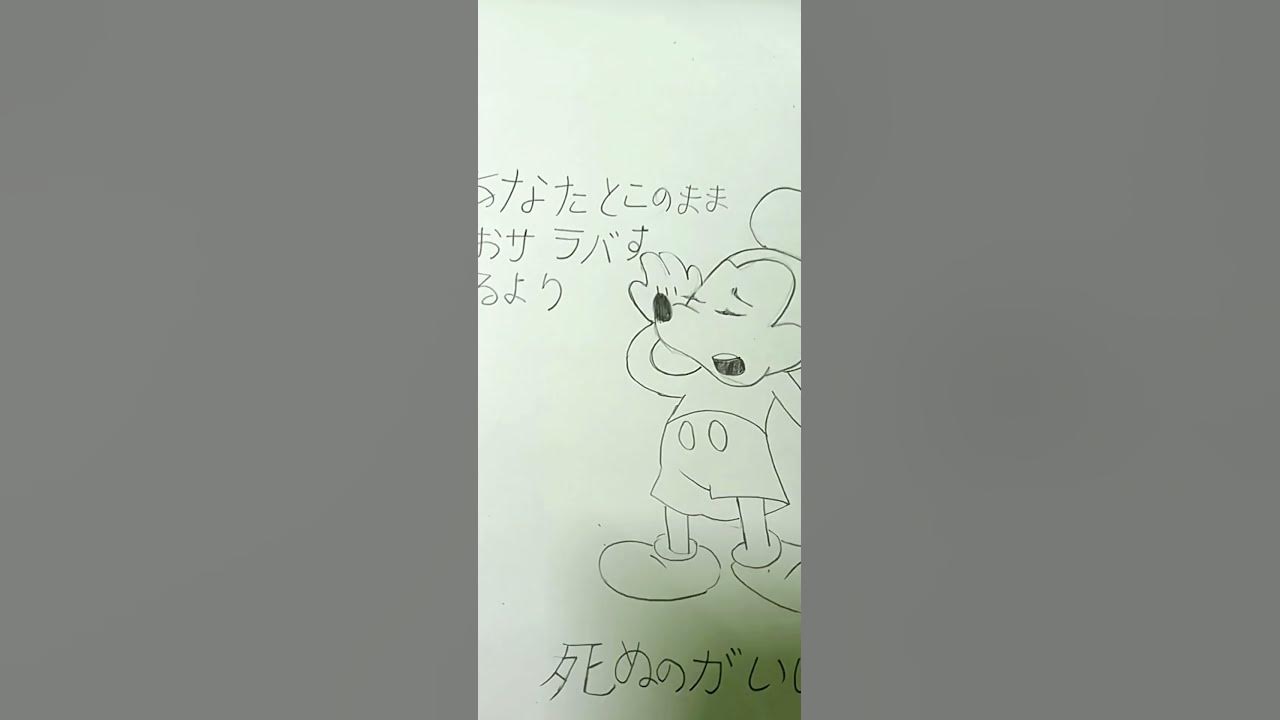 あなたとこのまま
おサラバす
るより
死ぬのがいい